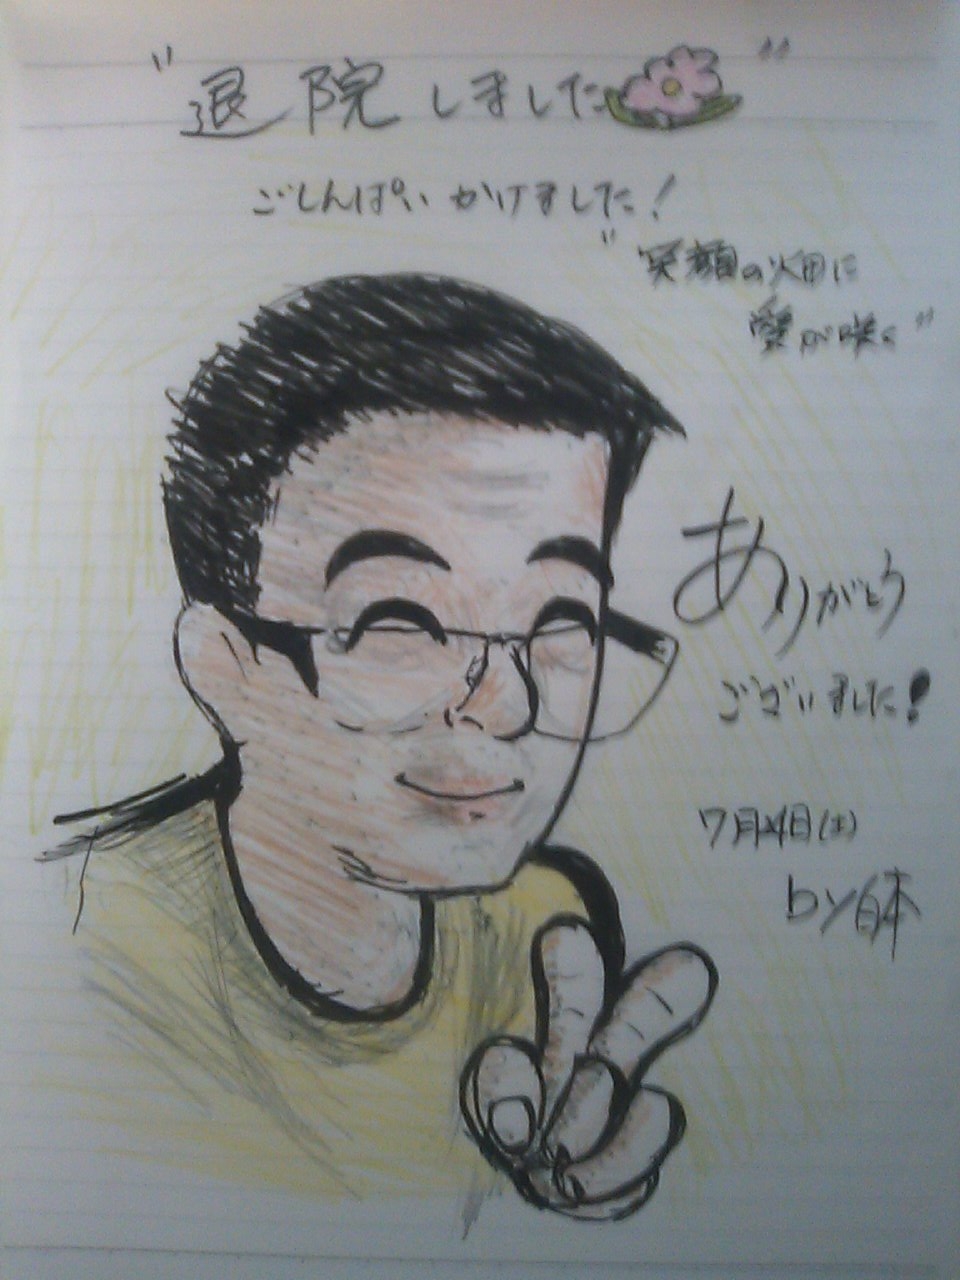 "退院しました"
ごしんぱいかけました!
"笑顔の畑に
愛が咲く"
ありがとう
ございました!
7月14日(土)
by自本